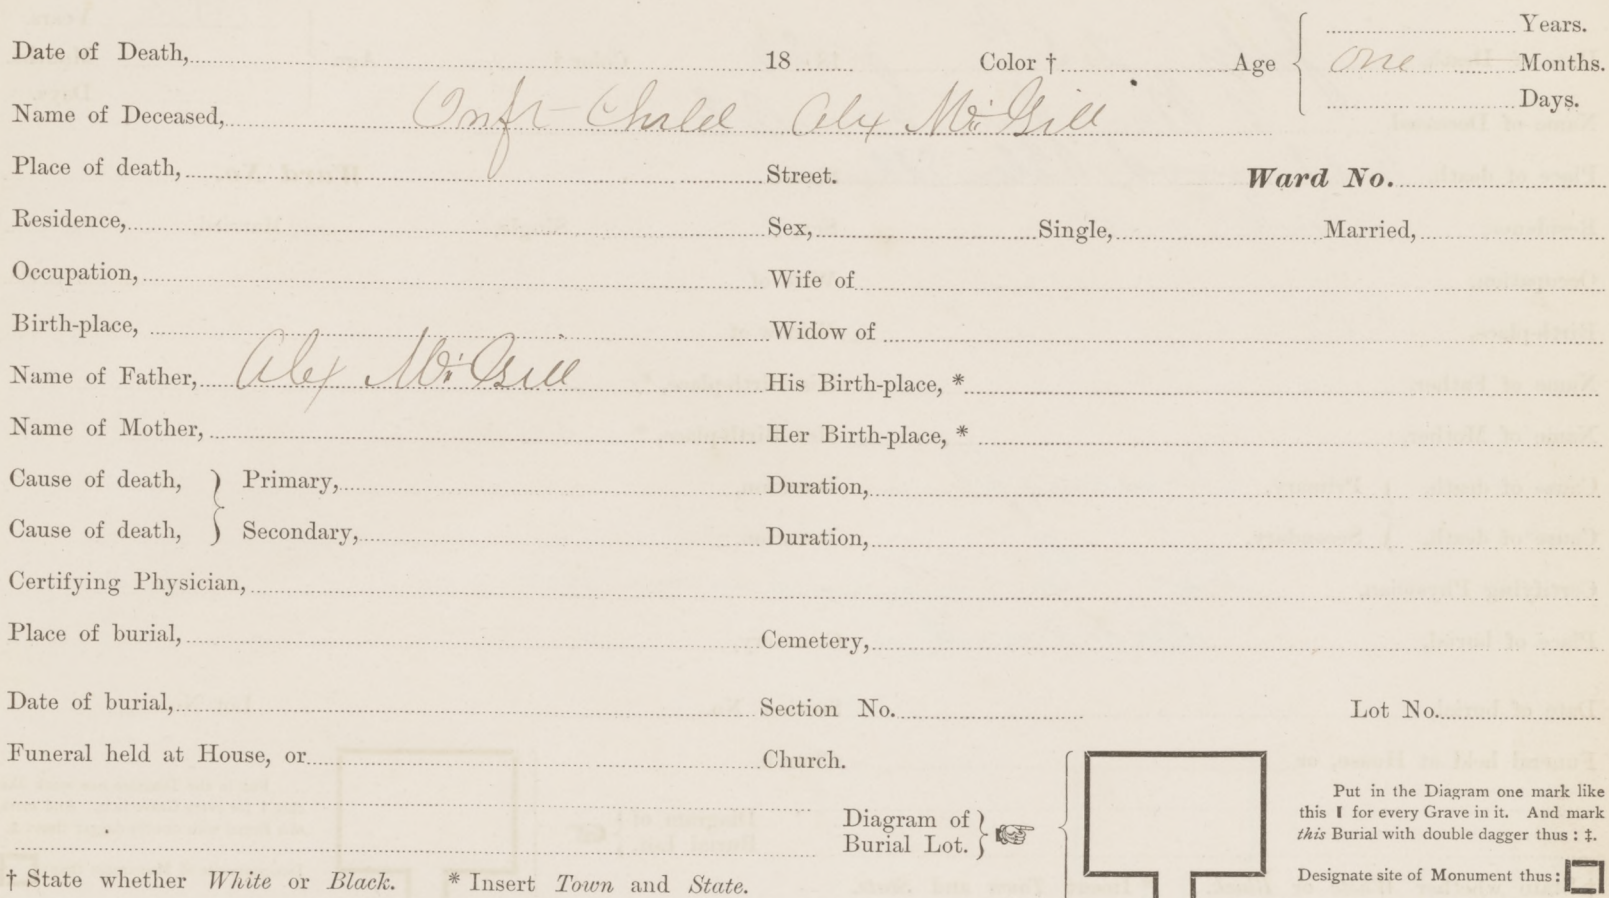 Years.
Date of Death, 18 Color † Age one Months.
Days.
Name of Deceased, Inft Child Alex Mc:Gill
Place of death, Street. Ward No.
Residence, Sex, Single, Married,
Occupation, Wife of
Birth-place, Widow of
Name of Father, Alex Mc:Gill His Birth-place, *
Name of Mother, Her Birth-place, *
Cause of death, } Primary, Duration,
Cause of death, } Secondary, Duration,
Certifying Physician,
Place of burial, Cemetery,
Date of burial, Section No. Lot No.
Funeral held at House, or Church.
Diagram of
Burial Lot.
Put in the Diagram one mark like
this I for every Grave in it. And mark
this Burial with double dagger thus : ‡.
Designate site of Monument thus :
† State whether White or Black. * Insert Town and State.